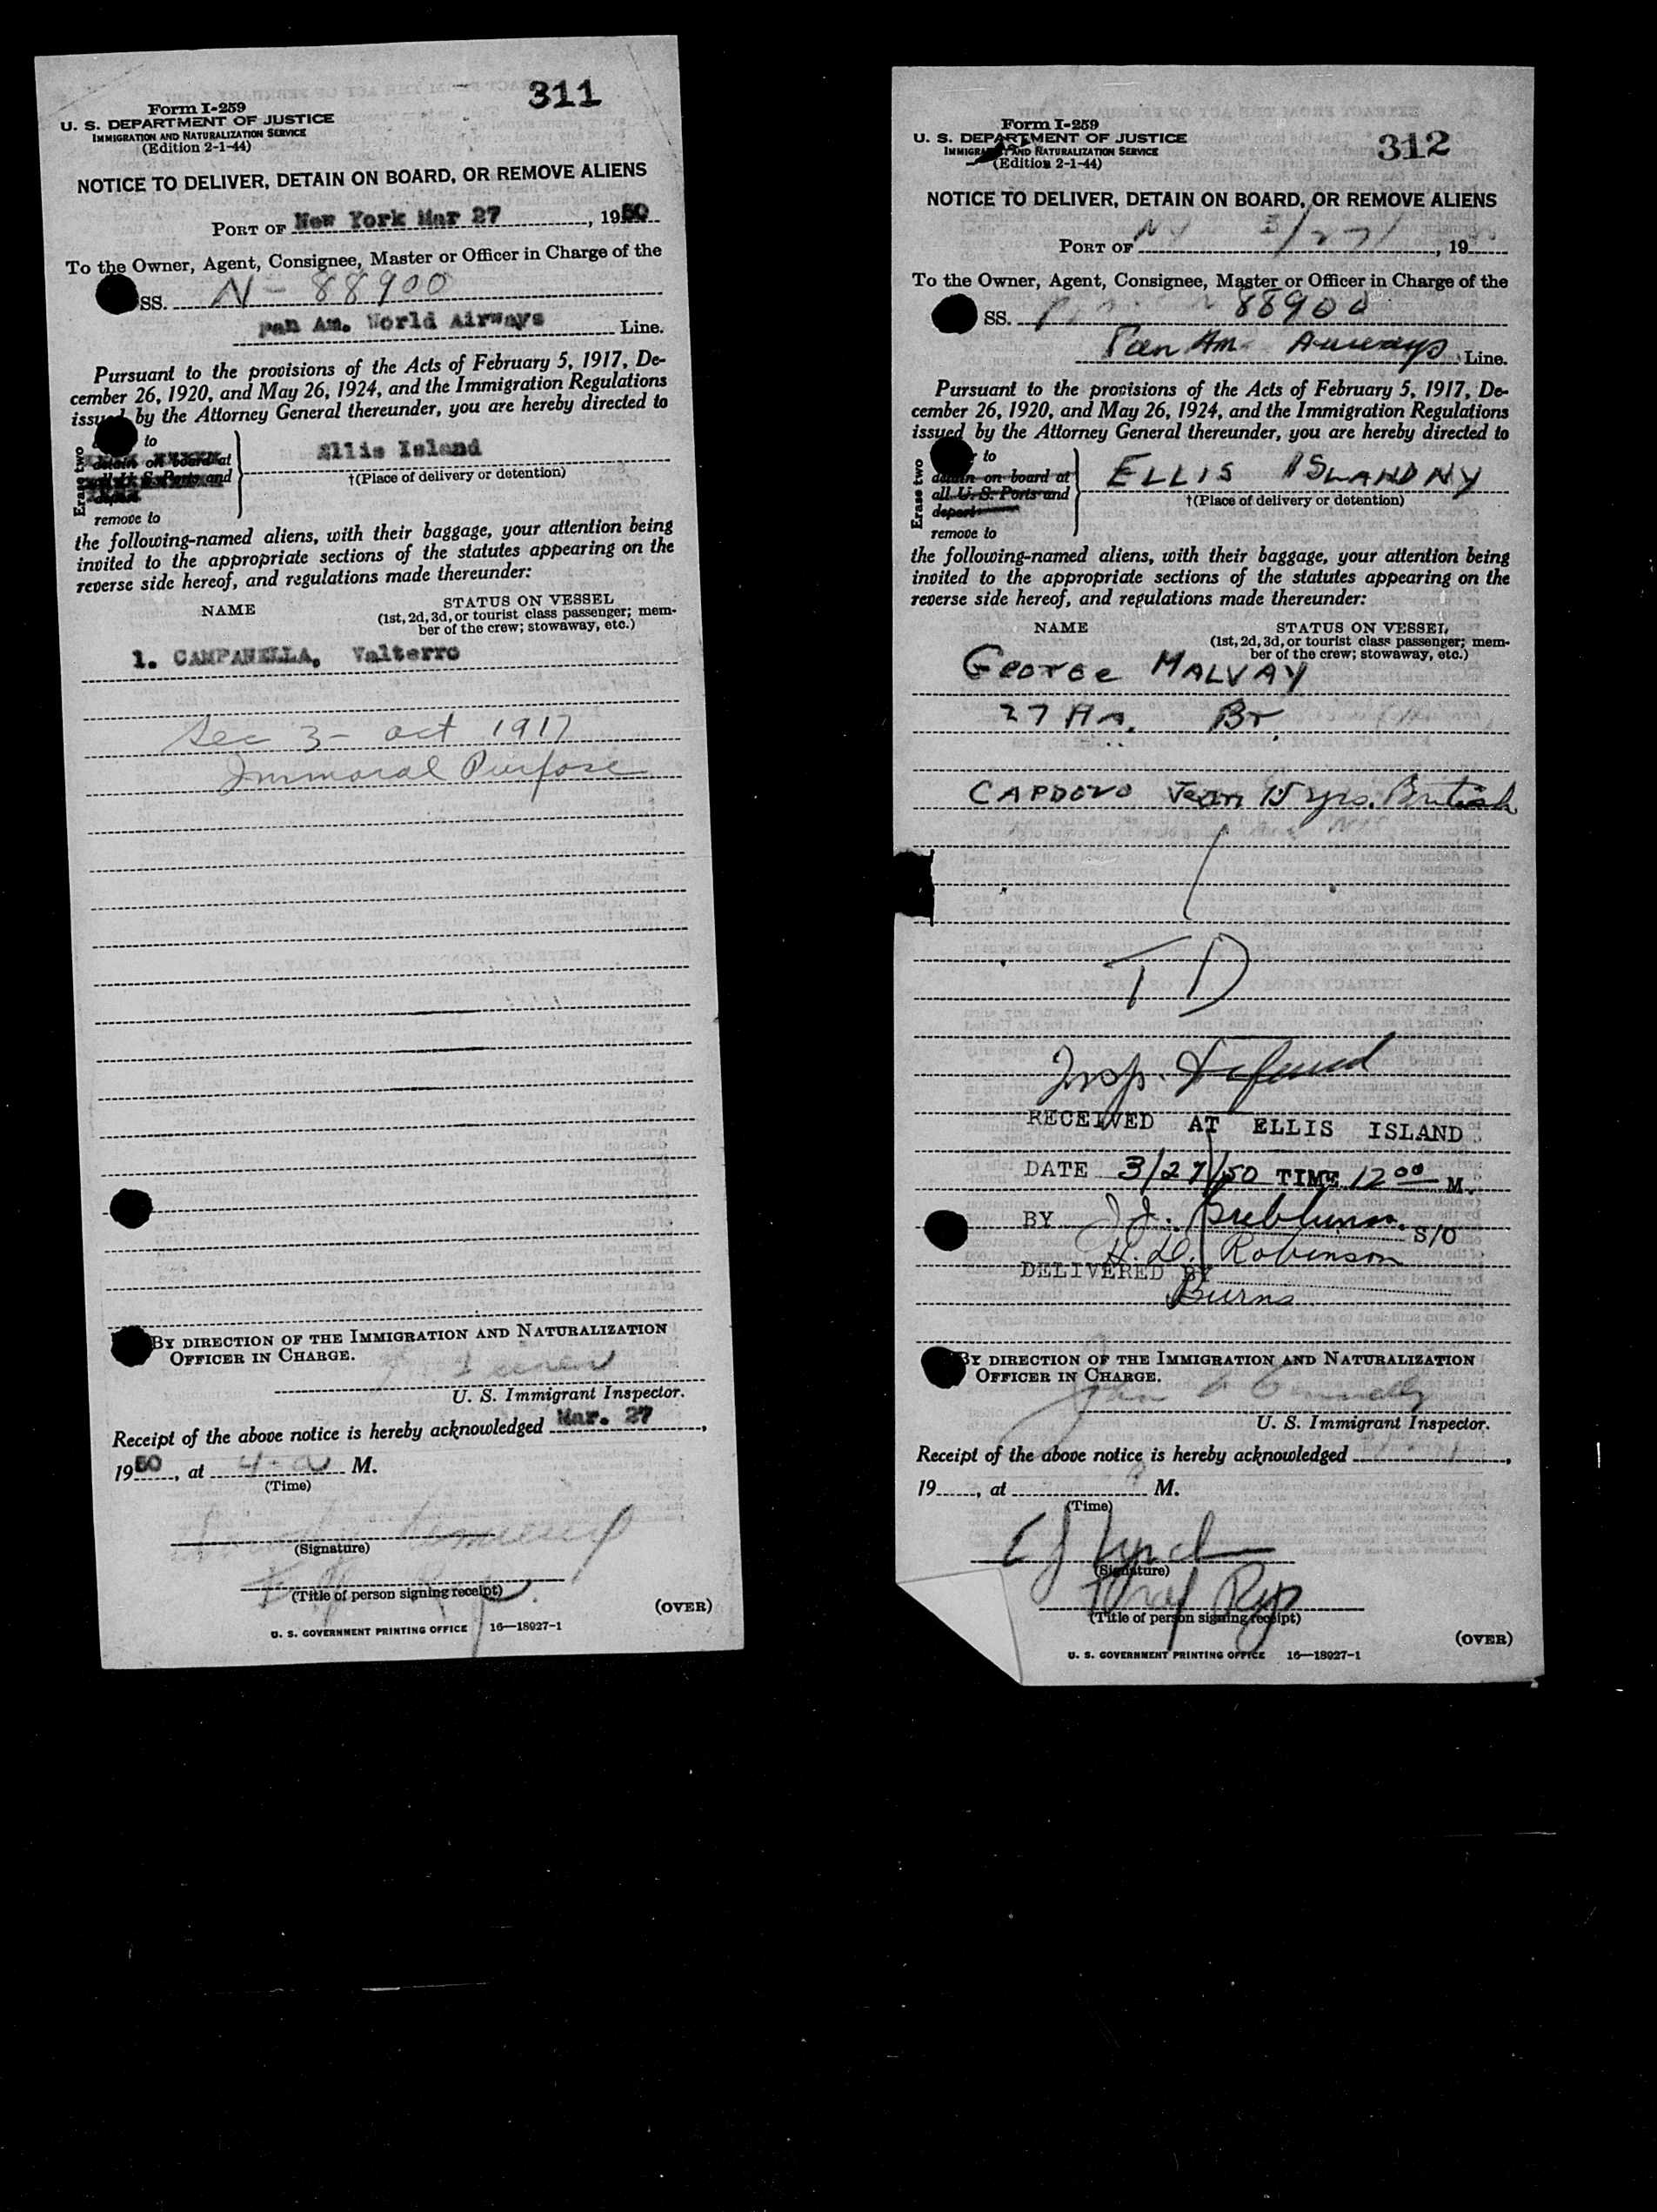 311
Form I-259
U. S. DEPARTMENT OF JUSTICE
IMMIGRATION AND NATURALIZATION SERVICE
(Edition 2-1-44)
NOTICE TO DELIVER, DETAIN ON BOARD, OR REMOVE ALIENS
PORT OF New York Mar 27, 1950
To the Owner, Agent, Consignee, Master or Officer in Charge of the
SS. N-88900
Pan Am. World Airways Line.
Pursuant to the provisions of the Acts of February 5, 1917, De-
cember 26, 1920, and May 26, 1924, and the Immigration Regulations
issued by the Attorney General thereunder, you are hereby directed to
Erase two
to
detain on board at
all U. S. Ports and
deport
remove to
Ellis Island
†(Place of delivery or detention)
the following-named aliens, with their baggage, your attention being
invited to the appropriate sections of the statutes appearing on the
reverse side hereof, and regulations made thereunder:
NAME
STATUS ON VESSEL
(1st, 2d, 3d, or tourist class passenger; mem-
ber of the crew; stowaway, etc.)
1. CAMPANELLA, Valterro
Sec 3- act 1917
Immoral Purpose
BY DIRECTION OF THE IMMIGRATION AND NATURALIZATION
OFFICER IN CHARGE.
U. S. Immigrant Inspector.
Receipt of the above notice is hereby acknowledged Mar. 27,
1950, at M.
(Time)
(Signature)
(Title of person signing receipt)
(OVER)
U. S. GOVERNMENT PRINTING OFFICE 16—18927-1
312
Form I-259
U. S. DEPARTMENT OF JUSTICE
IMMIGRATION AND NATURALIZATION SERVICE
(Edition 2-1-44)
NOTICE TO DELIVER, DETAIN ON BOARD, OR REMOVE ALIENS
PORT OF NY 3/27/, 19
To the Owner, Agent, Consignee, Master or Officer in Charge of the
SS. 88900
Pan Am Airways Line.
Pursuant to the provisions of the Acts of February 5, 1917, De-
cember 26, 1920, and May 26, 1924, and the Immigration Regulations
issued by the Attorney General thereunder, you are hereby directed to
Erase two
to
detain on board at
all U. S. Ports and
deport
remove to
ELLIS ISLAND NY
†(Place of delivery or detention)
the following-named aliens, with their baggage, your attention being
invited to the appropriate sections of the statutes appearing on the
reverse side hereof, and regulations made thereunder:
NAME
STATUS ON VESSEL
(1st, 2d, 3d, or tourist class passenger; mem-
ber of the crew; stowaway, etc.)
George MALVAY
27 Br.
CAPDOVO Jean 15 yrs. British
TD
Insp. Deferred
RECEIVED AT ELLIS ISLAND
DATE 3/27/50 TIME 12 00 M.
BY S/O
H. D. Robinson
DELIVERED BY
Burns
BY DIRECTION OF THE IMMIGRATION AND NATURALIZATION
OFFICER IN CHARGE.
U. S. Immigrant Inspector.
Receipt of the above notice is hereby acknowledged
19, at M.
(Time)
Lynch
(Signature)
(Title of person signing receipt)
(OVER)
U. S. GOVERNMENT PRINTING OFFICE 16—18927-1